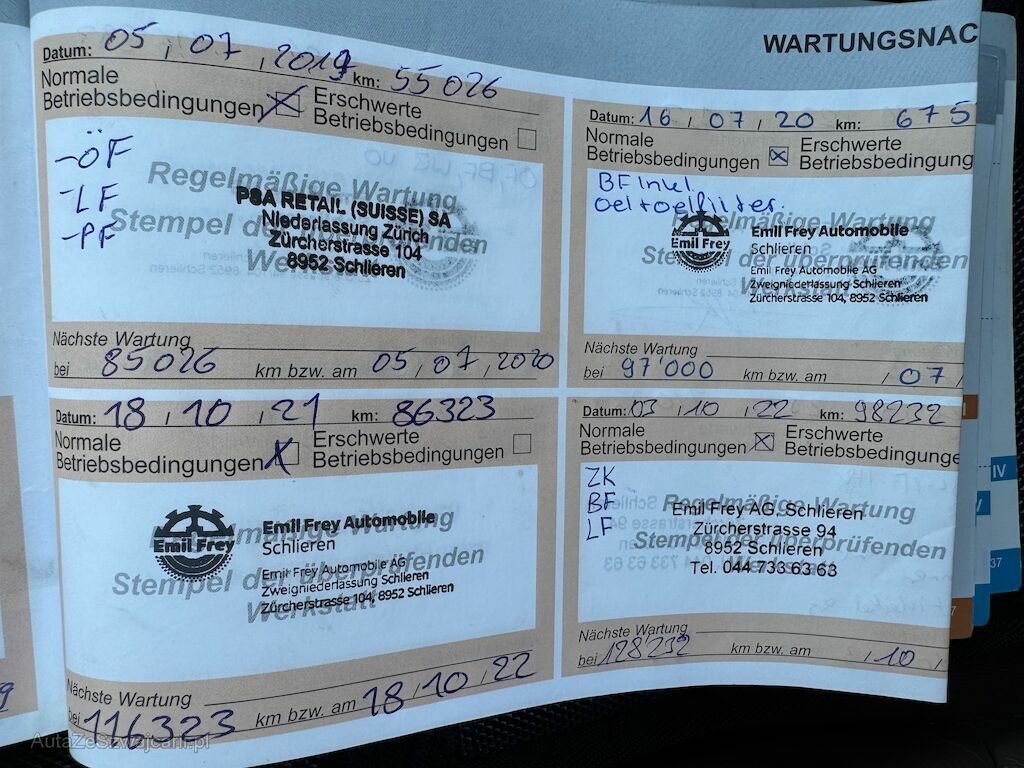 WARTUNGSNAC
Datum: 05 / 07 / 2019 km: 55026
Normale
Betriebsbedingungen
Erschwerte
Betriebsbedingungen
-ÖF
-LF
-PF
Regelmäßige Wartung
Stempel der überprüfenden
Werkstatt
PSA RETAIL (SUISSE) SA
Niederlassung Zürich
Zürcherstrasse 104
8952 Schlieren
Nächste Wartung
bei 85026 km bzw. am 05 / 07 / 2020
Datum: 16 / 07 / 20 km: 675
Normale
Betriebsbedingungen
Erschwerte
Betriebsbedingung
BF Inkl.
Oel + oelfilter.
Regelmäßige Wartung
Stempel der überprüfenden
Werkstatt
Emil Frey
Emil Frey Automobile
Schlieren
Emil Frey Automobile AG
Zweigniederlassung Schlieren
Zürcherstrasse 104, 8952 Schlieren
Nächste Wartung
bei 97'000 km bzw. am / 07 /
Datum: 18 / 10 / 21 km: 86323
Normale
Betriebsbedingungen
Erschwerte
Betriebsbedingungen
Regelmäßige Wartung
Stempel der überprüfenden
Werkstatt
Emil Frey
Emil Frey Automobile
Schlieren
Emil Frey Automobile AG
Zweigniederlassung Schlieren
Zürcherstrasse 104, 8952 Schlieren
Nächste Wartung
bei 116323 km bzw. am 18 / 10 / 22
Datum: 03 / 10 / 22 km: 98232
Normale
Betriebsbedingungen
Erschwerte
Betriebsbedingunge
ZK
BF
LF
Regelmäßige Wartung
Stempel der überprüfenden
Emil Frey AG, Schlieren
Zürcherstrasse 94
8952 Schlieren
Tel. 044 733 63 63
Nächste Wartung
bei 128232 km bzw. am / 10 /
IV
V
37
7
9
AutaZeSzwajcarii.pl